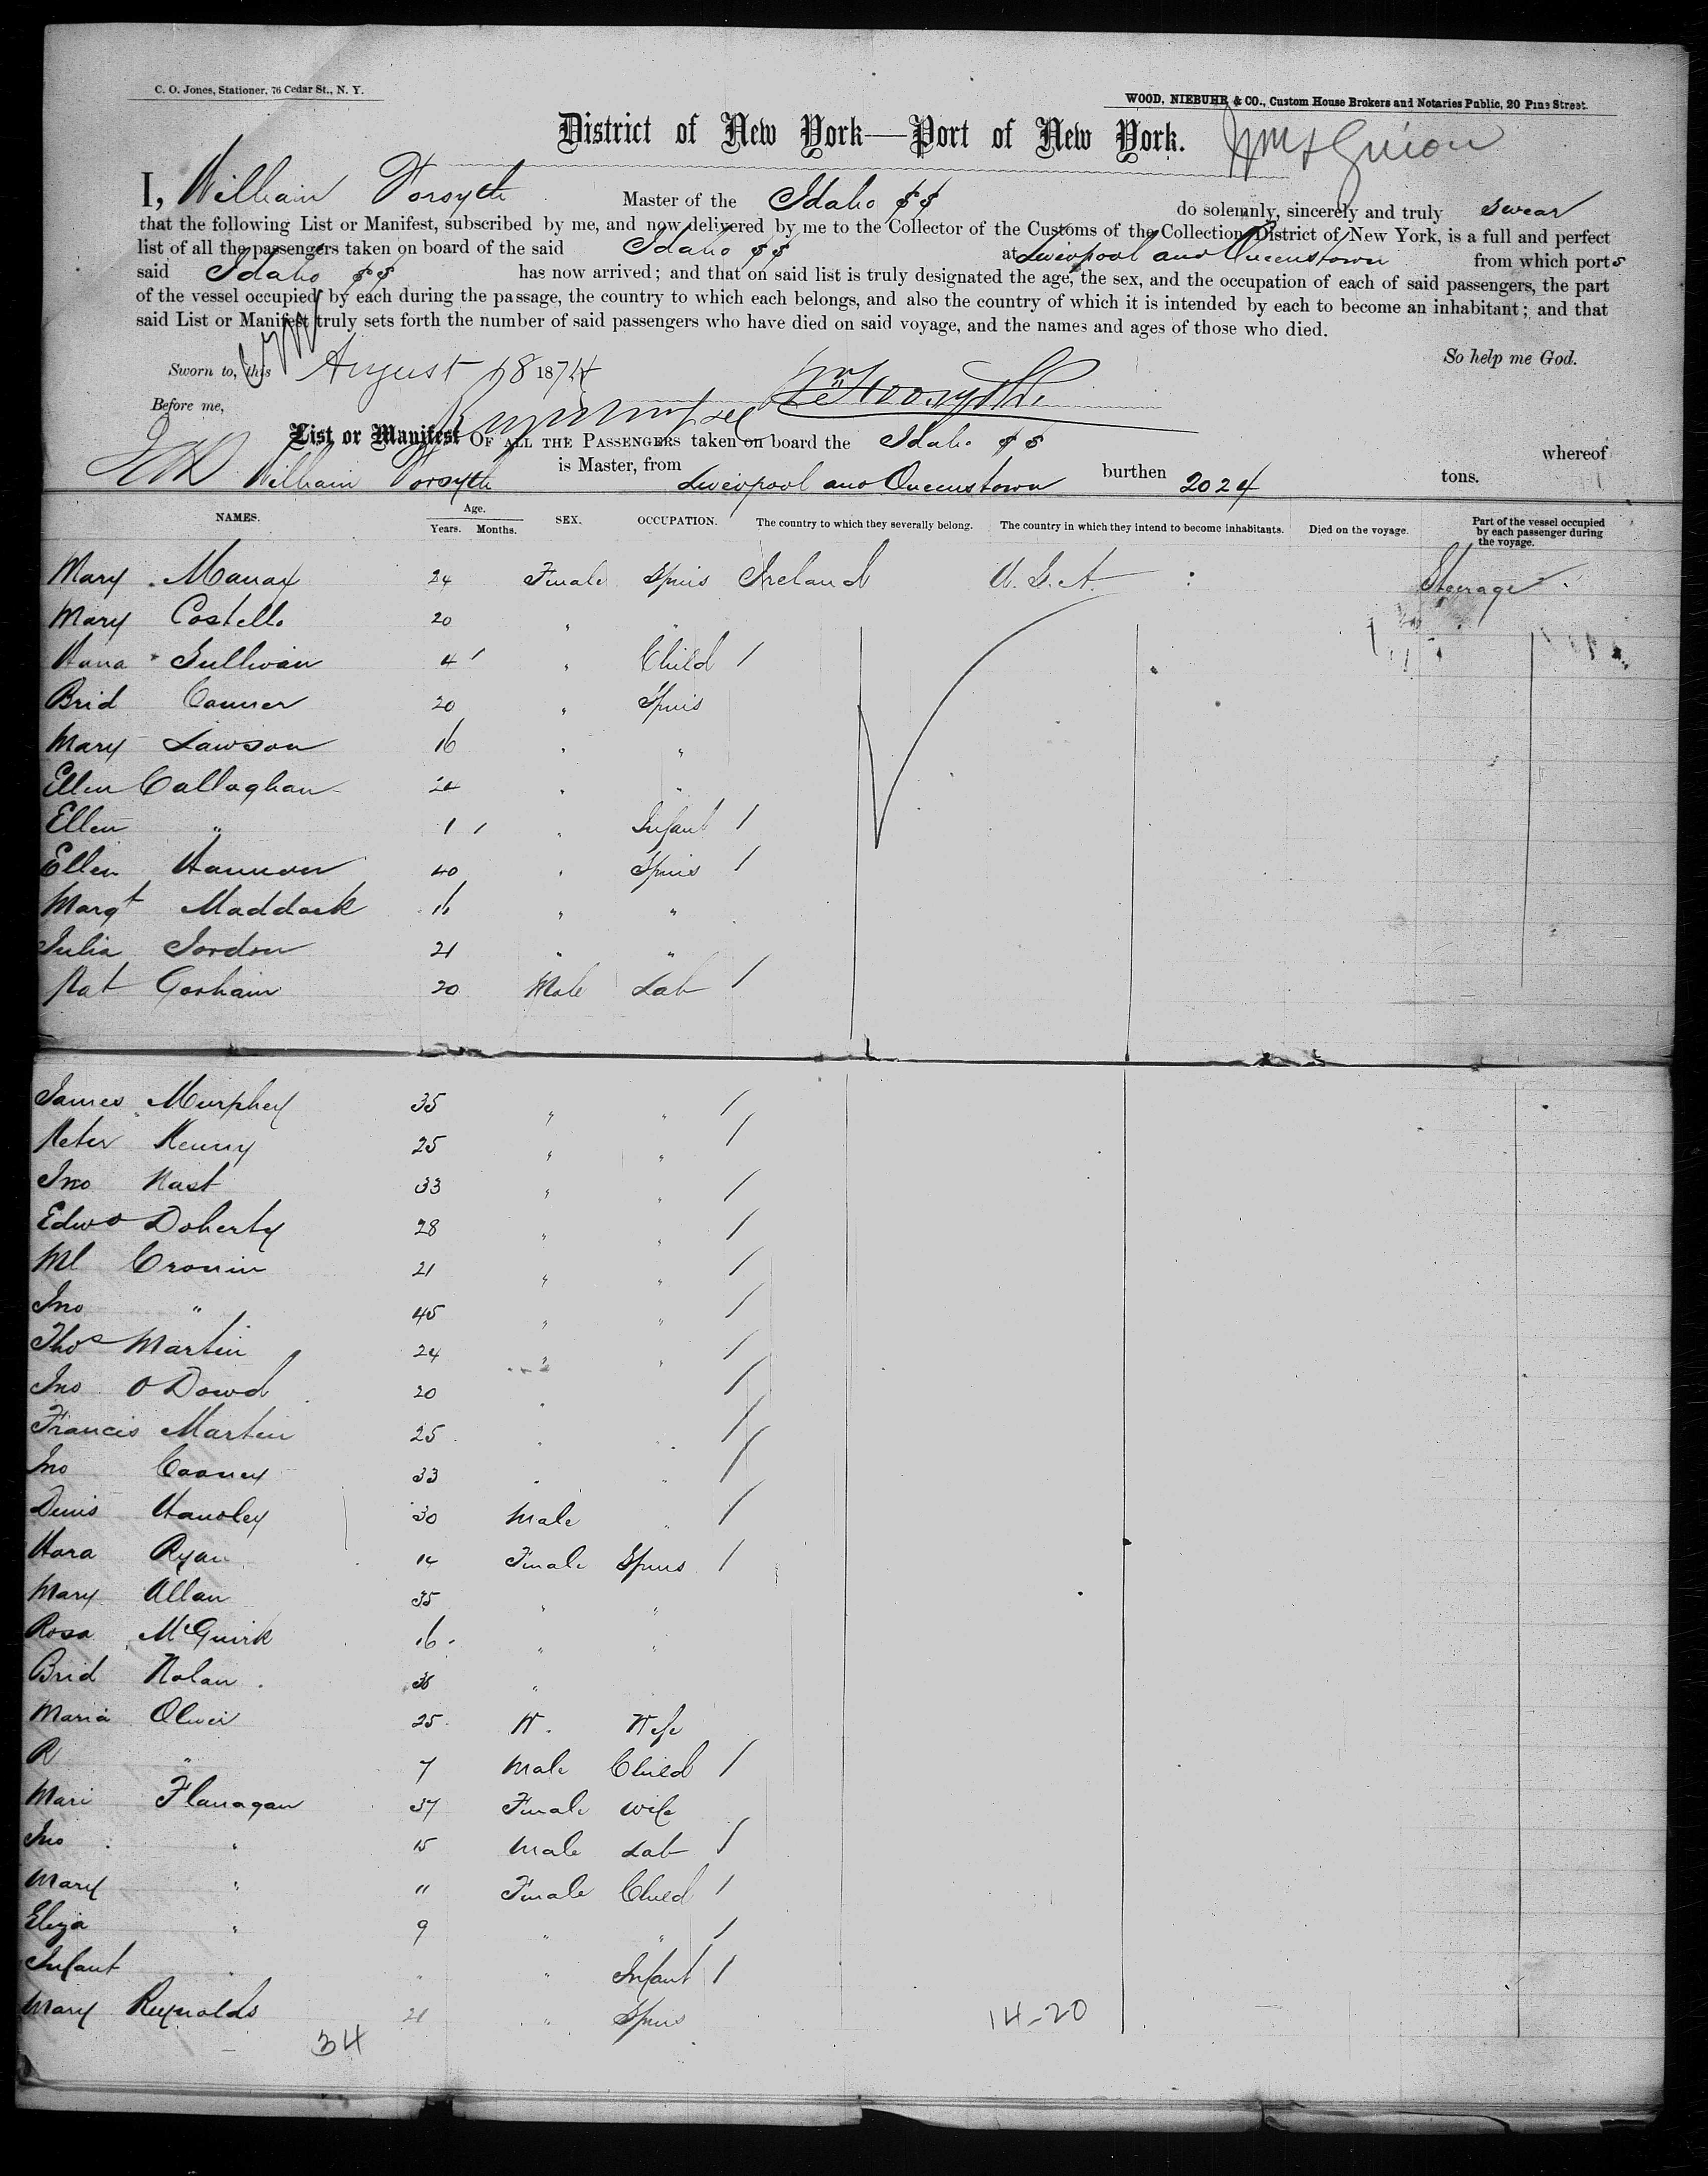 C. O. Jones, Stationer, 76 Cedar St., N. Y.
WOOD, NIEBUHR & CO., Custom House Brokers and Notaries Public, 20 Pine Street.
District of New York—Port of New York.
I, William Forsyth Master of the Idaho SS do solemnly, sincerely and truly swear
that the following List or Manifest, subscribed by me, and now delivered by me to the Collector of the Customs of the Collection District of New York, is a full and perfect
list of all the passengers taken on board of the said Idaho SS at Liverpool and Queenstown from which ports
said Idaho SS has now arrived; and that on said list is truly designated the age, the sex, and the occupation of each of said passengers, the part
of the vessel occupied by each during the passage, the country to which each belongs, and also the country of which it is intended by each to become an inhabitant; and that
said List or Manifest truly sets forth the number of said passengers who have died on said voyage, and the names and ages of those who died.
So help me God.
Sworn to, this August 18 1874
Wm Forsyth
Before me,
List or Manifest OF ALL THE PASSENGERS taken on board the Idaho SS whereof
William Forsyth is Master, from Liverpool and Queenstown burthen 2024 tons.
NAMES. Age. Years. Months. SEX. OCCUPATION. The country to which they severally belong. The country in which they intend to become inhabitants. Died on the voyage. Part of the vessel occupied by each passenger during the voyage.
Mary 24 Female Spins Ireland U.S.A. Steerage
Mary Costello 20 " "
Hana Sullivan 4 " Child
Brid Connor 20 " Spins
Mary Lawson 16 " "
Ellen Callaghan 24 " "
Ellen " 1 " Infant
Ellen 40 " Spins
Margt Maddock 16 " "
Julia Jordon 21 " "
Pat Gorham 20 Male Lab
James Murphey 35 " "
Peter Kenny 25 " "
Jno Nast 33 " "
Edwd Doherty 28 " "
Ml Cronin 21 " "
Jno " 45 " "
Thos Martin 24 " "
Jno O Dowd 20 "
Francis Martin 25 " "
Jno Cooney 33 " "
Denis Handley 30 Male "
Hora Ryan 14 Female Spins
Mary Allan 35 " "
Rosa McGuirk 16 " "
Brid Nolan 36 "
Maria Oliver 25 Wife
R " 7 Male Child
Mari Flanagan 37 Female Wife
Jno " 15 Male Lab
Mary " 11 Female Child
Eliza " 9 " "
Infant " " " Infant
Mary Reynolds 21 " Spins
34
14-20